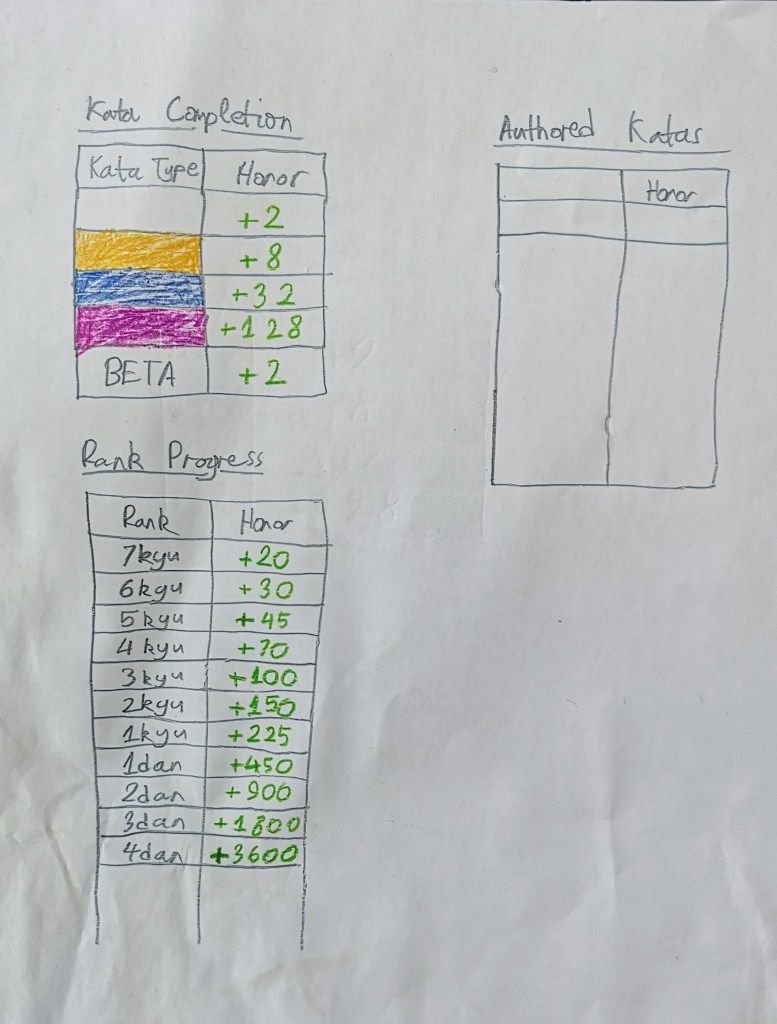 Kata Completion
Kata Type Honor
+2
+8
+32
+128
BETA +2
Rank Progress
Rank Honor
7kyu +20
6kyu +30
5kyu +45
4kyu +70
3kyu +100
2kyu +150
1kyu +225
1dan +450
2dan +900
3dan +1800
4dan +3600
Authored Katas
Honor